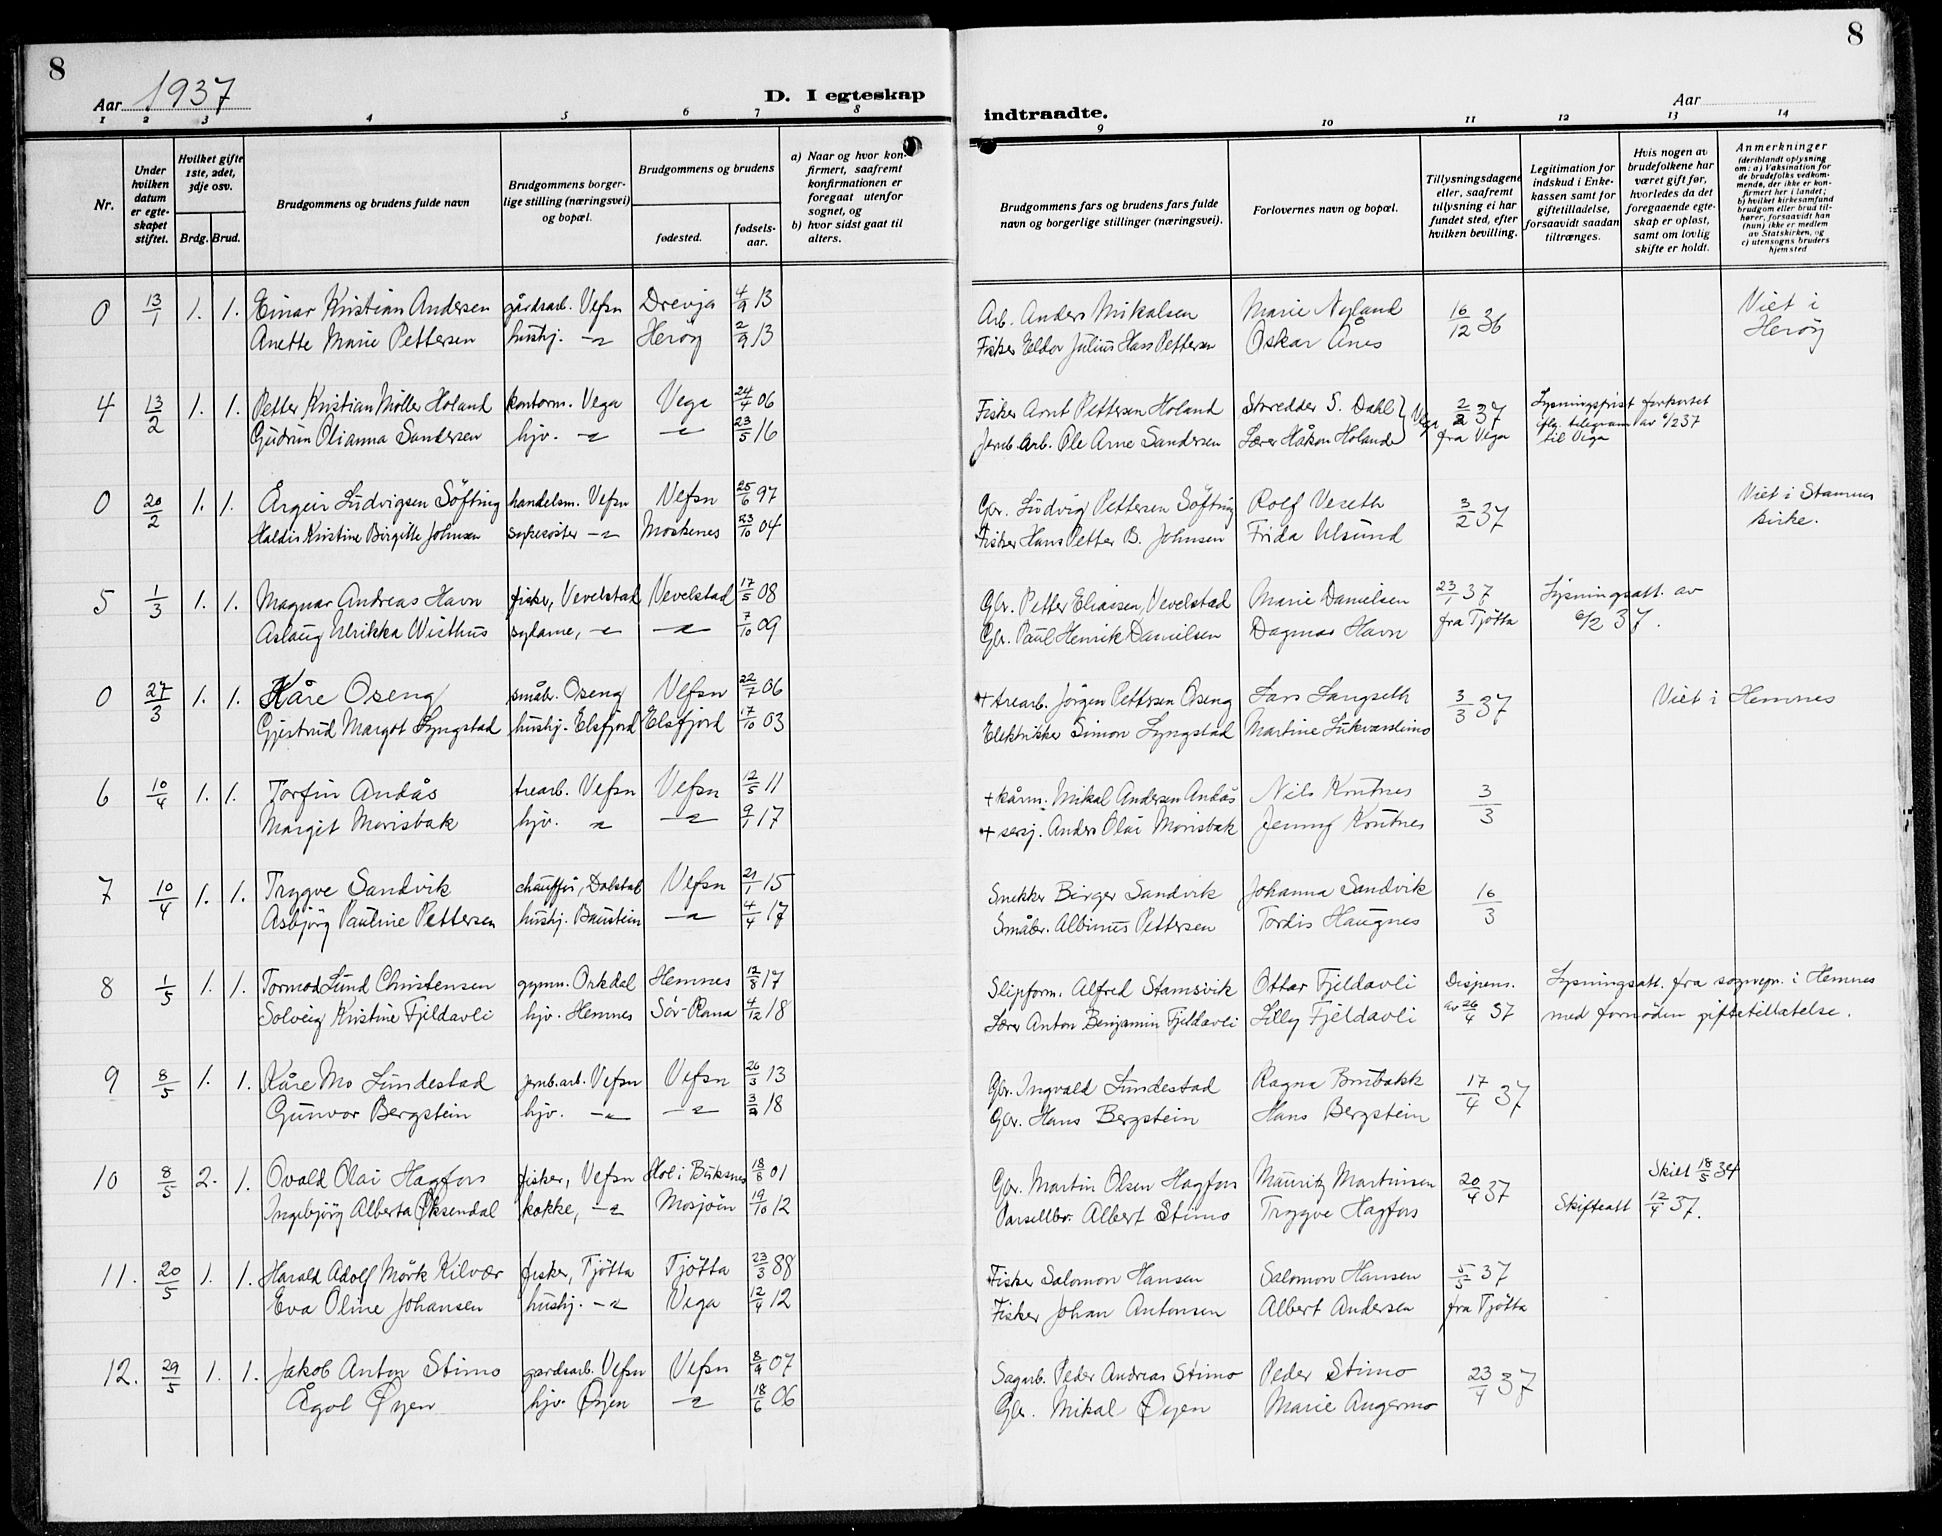 8
8
Aar 1937
D. I egteskap
indtraadte.
Aar
1 2 3 4 5 6 7 8
9 10 11 12 13 14
Nr.
Under hvilken datum er egteskapet stiftet.
Hvilket gifte 1ste, 2det, 3dje osv.
Brdg. Brud.
Brudgommens og brudens fulde navn
Brudgommens borgerlige stilling (næringsvei) og bopæl.
Brudgommens og brudens
fødested.
fødselsaar.
a) Naar og hvor konfirmert, saafremt konfirmationen er foregaat utenfor sognet, og
b) hvor sidst gaat til alters.
Brudgommens fars og brudens fars fulde navn og borgerlige stillinger (næringsvei).
Forlovernes navn og bopæl.
Tillysningsdagene eller, saafremt tillysning ei har fundet sted, efter hvilken bevilling.
Legitimation for indskud i Enkekassen samt for giftetilladelse, forsaavidt saadan tiltrænges.
Hvis nogen av brudefolkene har været gift før, hvorledes da det foregaaende egteskap er opløst, samt om lovlig skifte er holdt.
Anmerkninger (deriblandt oplysning om: a) Vaksination for de brudefolks vedkommende, der ikke er konfirmert her i landet; b) hvilket kirkesamfund brudgom eller brud tilhører, forsaavidt han (hun) ikke er medlem av Statskirken, og c) utensogns bruders hjemsted
0 13/1 1. 1. Einar Kristian Andersen gårdsarb. Vefsn Drevja 4/9 13 Arb. Anders Mikalsen Marie Nyland 16/12 36 Viet i
Anette Marie Pettersen hushj. -"- Herøy 2/9 13 Fisker Eldor Julius Hans Pettersen Oskar Ånes Herøy
4 13/2 1. 1. Petter Kristian Möller Holand kontorm. Vega Vega 24/4 06 Fisker Arnt Pettersen Holand Storedder S. Dahl } Vega 2/2 37 Lysningsfrist forkortet
Gudrun Olianna Sandersen hjv. -"- -"- 23/5 16 Jernb.arb. Ole Arne Sandersen Lærer Håkon Holand fra Vega iflg. telegram av 6/2 37 til Vega
0 20/2 1. 1. Årgeir Ludvigsen Söfting handelsm. Vefsn Vefsn 25/6 97 Gbr. Ludvig Pettersen Söfting Rolf Veseth 3/2 37 Viet i Stamnes
Haldis Kristine Birgitte Johnsen sykesöster -"- Moskenes 23/10 04 Fisker Hans Petter B. Johnsen Frida Ulsund kirke.
5 1/3 1. 1. Magnar Andreas Havn fisker, Vevelstad Vevelstad 17/5 08 Gbr. Petter Eliassen, Vevelstad Marie Danielsen 23/1 37 Lysningsatt. av
Aslaug Ulrikka Wisthus sydame, -"- -"- 7/10 09 Gbr. Paul Henrik Danielsen Dagmar Havn fra Tjötta 6/2 37.
0 27/3 1. 1. Kåre Oseng småbr. Oseng Vefsn 22/7 06 + trearb. Jörgen Pettersen Oseng Lars Langseth 3/3 37 Viet i Hemnes
Gjertrud Margot Lyngstad hushj. Elsfjord Elsfjord 17/10 03 Elektriker Simon Lyngstad Martine Lukvasslimo
6 10/4 1. 1. Torfin Andås trearb. Vefsn Vefsn 12/5 11 + kårm. Mikal Andersen Andås Nils Kontnes 3/3
Margit Morisbak hjv. " -"- 9/1 17 + sersj. Anders Olai Morisbak Jenny Kontnes
7 10/4 1. 1. Trygve Sandvik chaufför, Dolstad Vefsn 21/1 15 Snekker Birger Sandvik Johanna Sandvik 16/3
Asbjörg Pauline Pettersen hushj. Baustein -"- 4/4 17 Småbr. Albinus Pettersen Tordis Haugnes
8 1/5 1. 1. Tormod Lund Christensen gymn. Orkdal Hemnes 12/8 17 Slipform. Alfred Stamsvik Ottar Fjeldavli Dispens. Lysningsatt. fra sognepr. i Hemnes
Solveig Kristine Fjeldavli hjv. Hemnes Sör-Rana 4/12 18 Lærer Anton Benjamin Fjeldavli Lilly Fjeldavli av 26/4 37 med fornöden giftetillatelse.
9 8/5 1. 1. Kåre Mo Lundestad jernb.arb. Vefsn Vefsn 26/3 13 Gbr. Ingvald Lundestad Ragna Brubakk 17/4 37
Gunvor Bergstein hjv. -"- -"- 3/9 18 Gbr. Hans Bergstein Hans Bergstein
10 8/5 2. 1. Ovald Olai Hagfors fisker, Vefsn Hol i Buksnes 18/8 01 Gbr. Martin Olsen Hagfors Mauritz Martinsen 20/4 37 Skilt 18/5 34
Ingebjörg Alberta Øksendal kokke, -"- Mosjöen 19/10 12 Parsellbr. Albert Stimo Trygve Hagfors Skifteatt 12/4 37.
11. 20/5 1. 1. Harald Adolf Mörk Kilvær fisker, Tjötta Tjötta 23/3 88 Fisker Salomon Hansen Salomon Hansen 5/5 37
Eva Oline Johansen hushj. -"- Vega 12/4 12 Fisker Johan Antonsen Albert Andersen fra Tjötta
12. 29/5 1. 1. Jakob Anton Stimo gardsarb. Vefsn Vefsn 8/9 07 Sagarb. Peder Andreas Stimo Peder Stimo 23/4 37
Ågot Øyen hjv. Øyen -"- 18/6 06 Gbr. Mikal Øyen Marie Angermo